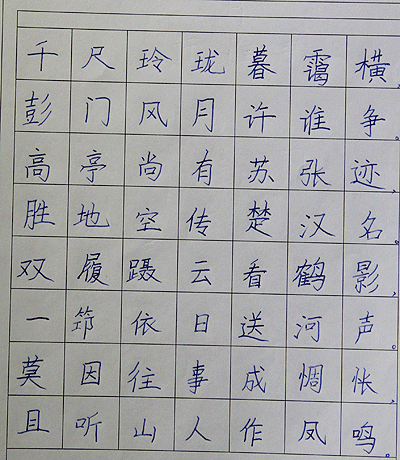 千尺玲珑暮霭横，
彭门风月许谁争。
高亭尚有苏张迹，
胜地空传楚汉名。
双履蹑云看鹤影，
一筇依日送河声。
莫因往事成惆怅，
且听山人作凤鸣。